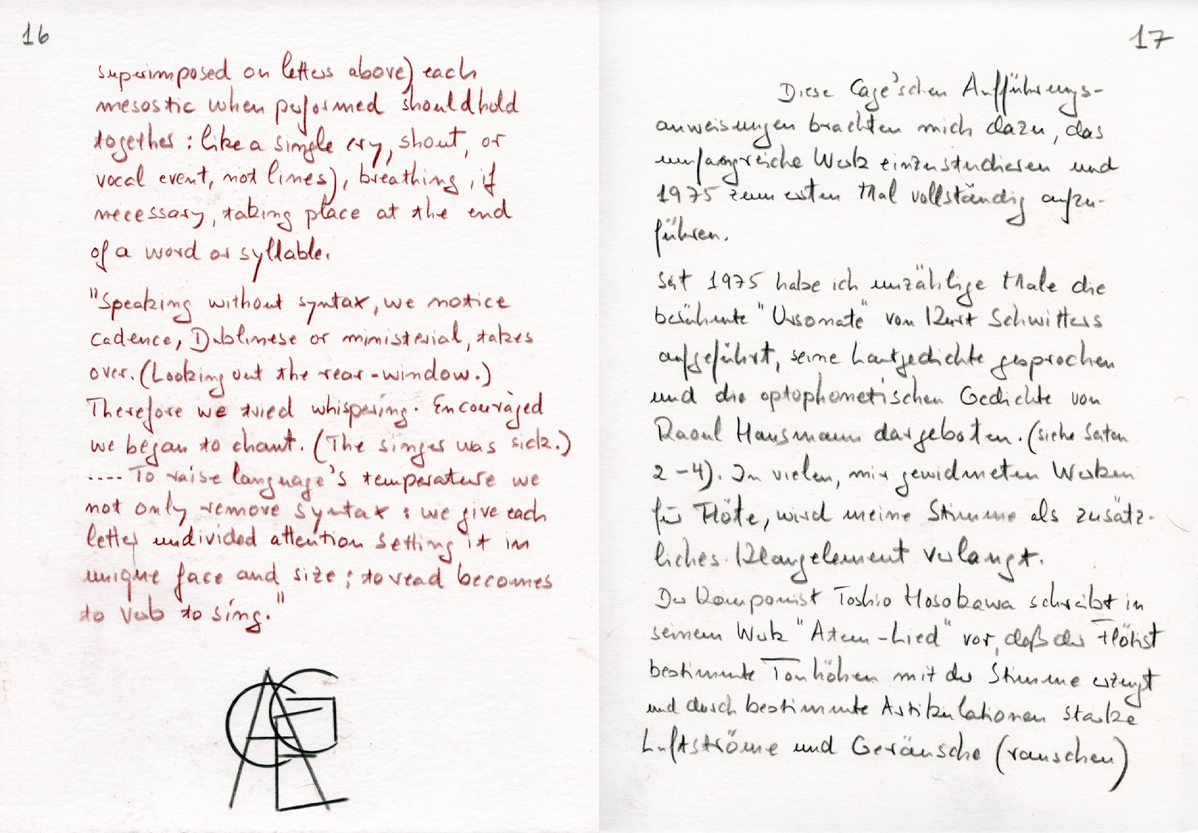 16
superimposed on letters above) each
mesostic when performed should hold
together: like a single cry, shout, or
vocal event, not lines), breathing, if
necessary, taking place at the end
of a word or syllable.
"Speaking without syntax, we notice
cadence, Dublinese or ministerial, takes
over. (Looking out the rear-window.)
Therefore we tried whispering. Encouraged
we began to chant. (The singer was sick.)
.... To raise language's temperature we
not only remove syntax: we give each
letter undivided attention setting it in
unique face and size; to read becomes
to verb to sing."
CAGE
17
Diese Cage'schen Aufführungs-
anweisungen brachten mich dazu, das
umfangreiche Werk einzustudieren und
1975 zum ersten Mal vollständig aufzu-
führen.
Seit 1975 habe ich unzählige Male die
berühmte "Ursonate" von Kurt Schwitters
aufgeführt, seine Lautgedichte gesprochen
und die optophonetischen Gedichte von
Raoul Hausmann dargeboten. (siehe Seiten
2-4). In vielen, mir gewidmeten Werken
für Flöte, wird meine Stimme als zusätz-
liches Klangelement verlangt.
Der Komponist Toshio Hosokawa schreibt in
seinem Werk "Atem-Lied" vor, daß der Flötist
bestimmte Tonhöhen mit der Stimme erzeugt
und durch bestimmte Artikulationen starke
Luftströme und Geräusche (rauschen)